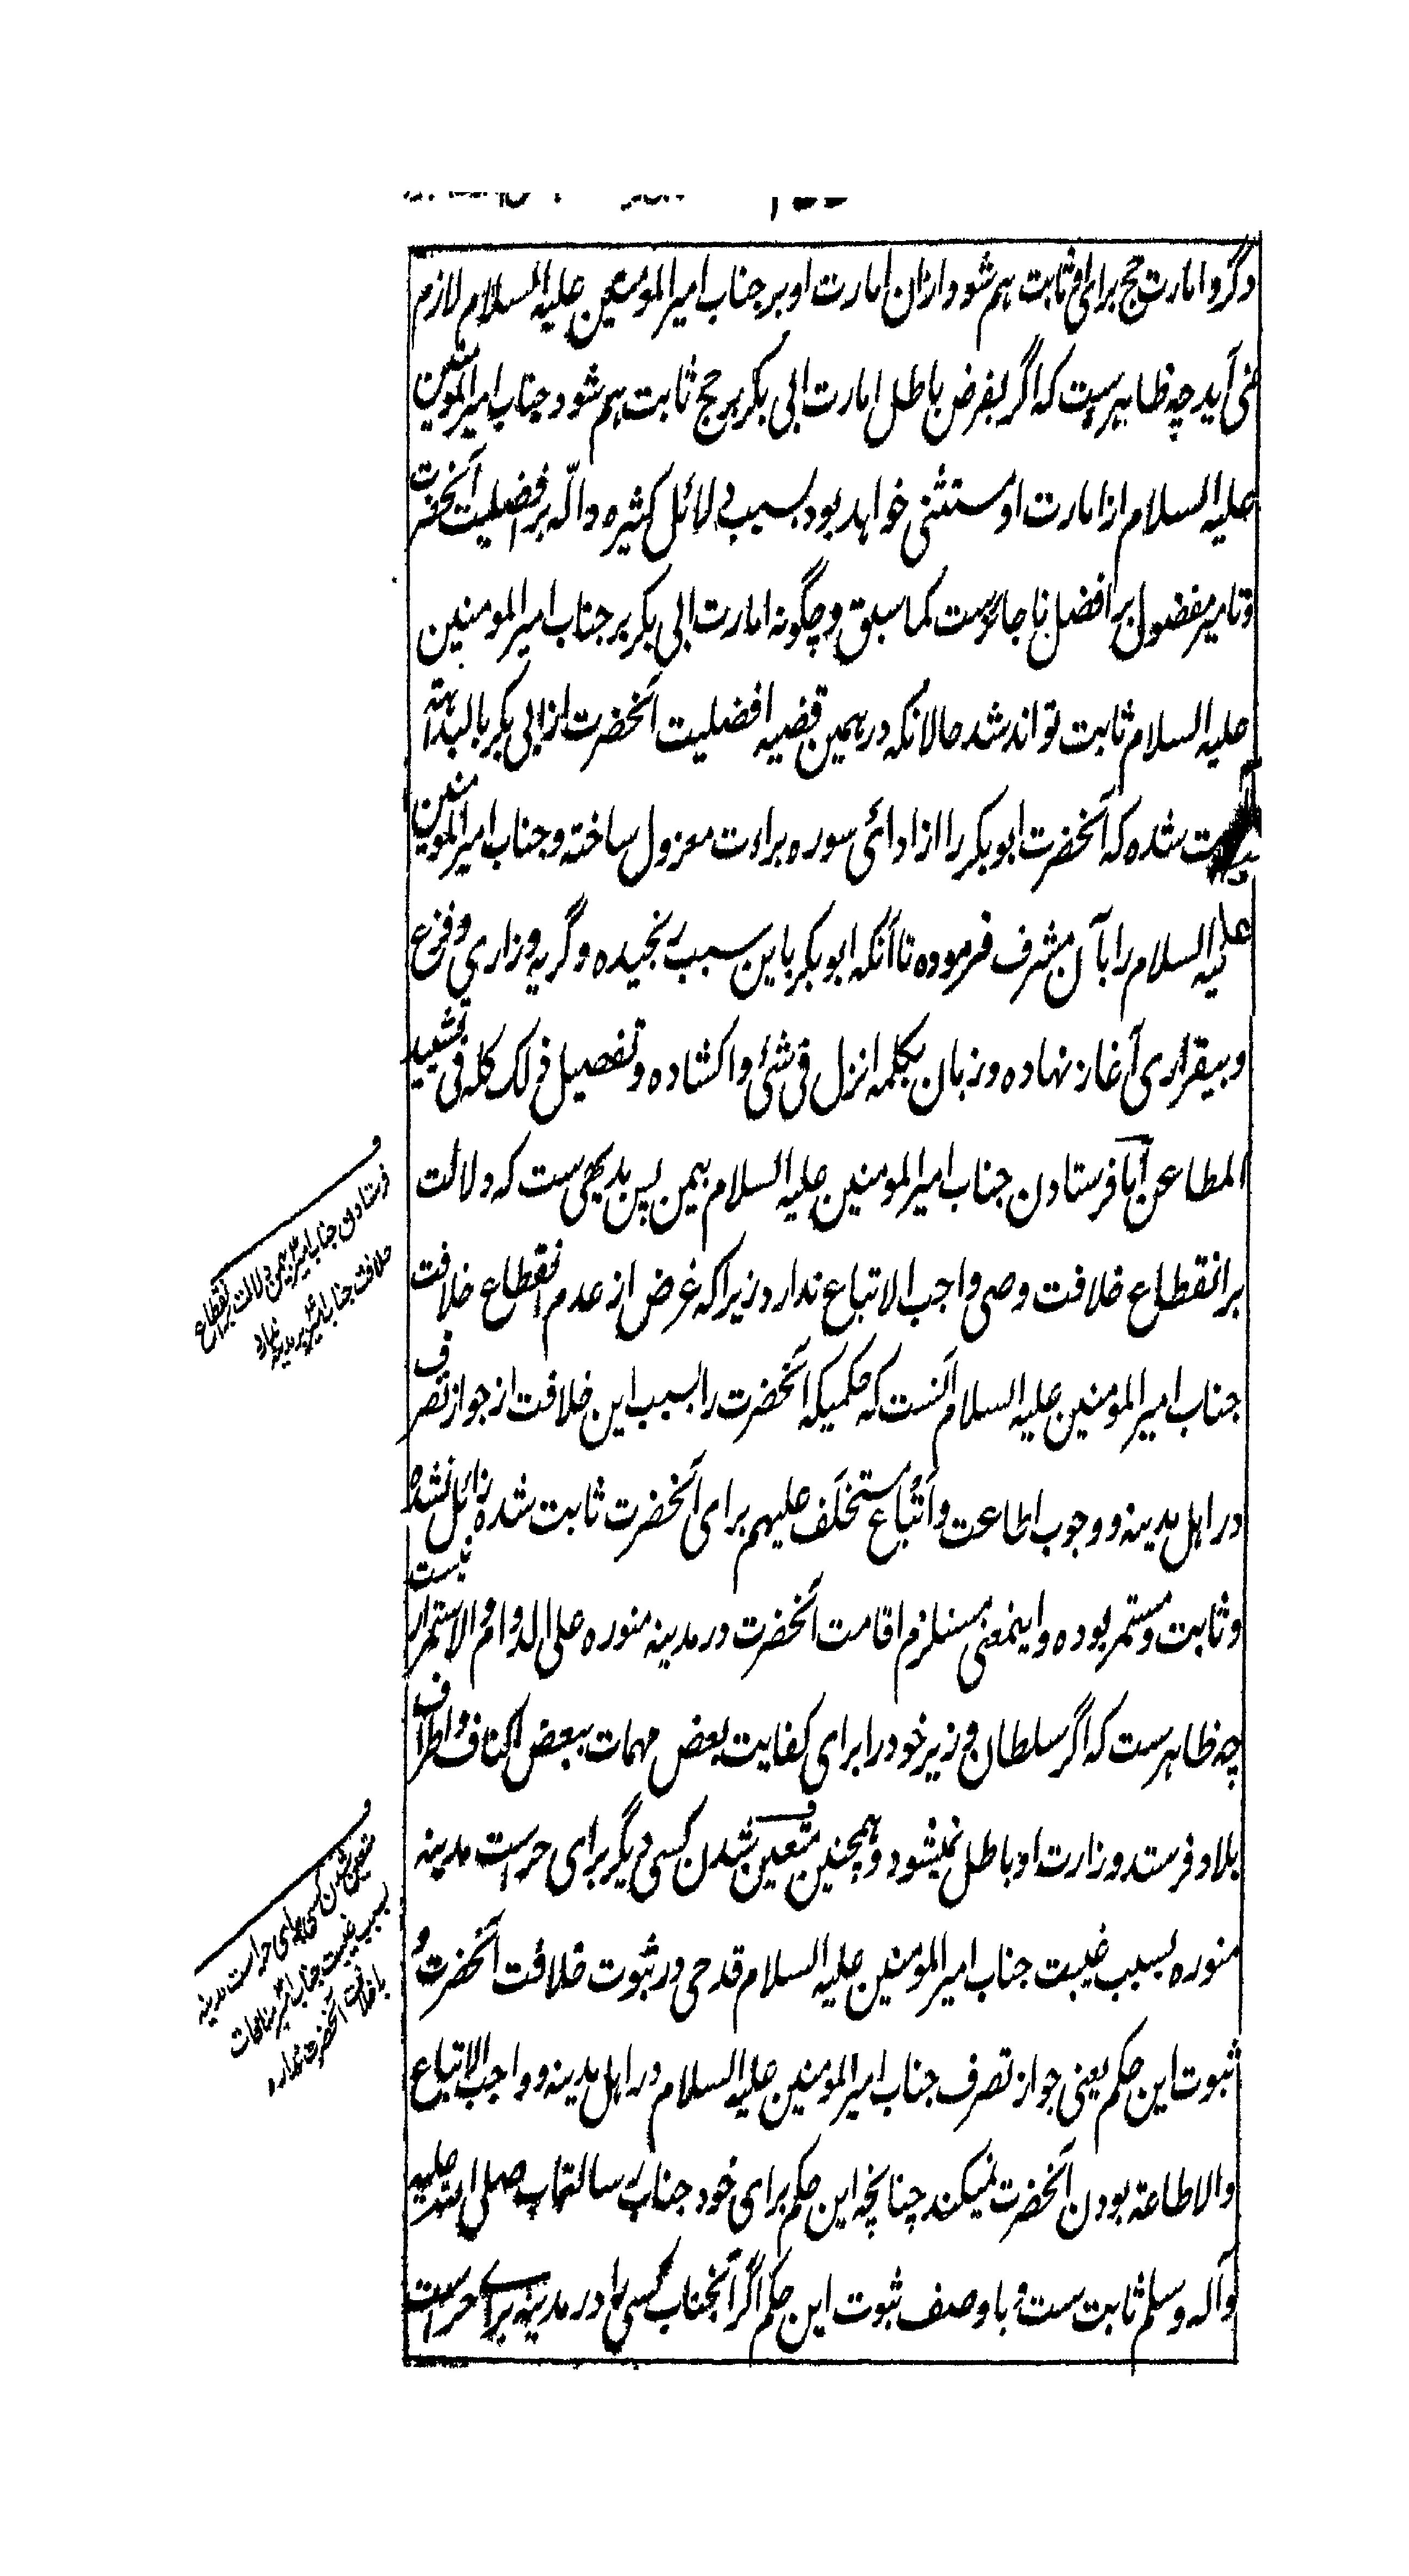 دگر و امارت حج برای او ثابت هم شود ازان امارت او بر جناب امیر المؤمنین علیه السلام لازم
نمی آید چه ظاهرست که اگر بفرض باطل امارت ابی بکر بر حج ثابت هم شود جناب امیر المومنین
علیه السلام از امارت او مستثنی خواهد بود بسبب دلائل کثیره دالّه بر افضلیت آنحضرت
و تامیر مفضول بر افضل ناجائزست کما سبق و چگونه امارت ابی بکر بر جناب امیر المومنین
علیه السلام ثابت تواند شد حالانکه در همین قضیه افضلیت آنحضرت از ابی بکر بالبداهة
ثابت شده که آنحضرت ابوبکر را از ادائی سوره براءت معزول ساخته و جناب امیر المومنین
علیه السلام را بآن مشرف فرموده تا آنکه ابوبکر باین سبب رنجیده و گریه و زاری و فزع
و بیقراری آغاز نهاده و زبان بکلمه انزل فی شئ واکشاده و تفصیل ذلک کله فی تشیید
المطاعن اما فرستادن جناب امیر المومنین علیه السلام بیمن پس بدیهی ست که دلالت
بر انقطاع خلافت وصی واجب الاتباع ندارد زیرا که غرض از عدم انقطاع خلافت
جناب امیر المومنین علیه السلام آنست که حکمیکه آنحضرت را بسبب این خلافت از جواز تصرف
در اهل مدینه و وجوب اطاعت و اتباع مستخلف علیهم برای آنحضرت ثابت شده زائل نشده
و ثابت و مستمر بوده و اینمعنی مستلزم اقامت آنحضرت در مدینه منوره علی الدوام و الاستمرار نیست
چه ظاهرست که اگر سلطان وزیر خود را برای کفایت بعض مهمات ببعض اکناف و اطراف
بلاد فرستد وزارت او باطل نمیشود و همچنین متعین شدن کسی دیگر برای حراست مدینه
منوره بسبب غیبت جناب امیر المومنین علیه السلام قدحی در ثبوت خلافت آنحضرت و
ثبوت این حکم یعنی جواز تصرف جناب امیر المومنین علیه السلام در اهل مدینه و واجب الاتباع
والاطاعة بودن آنحضرت نمیکند چنانچه این حکم برای خود جناب رسالتمآب صلی الله علیه
و آله وسلم ثابت ست و با وصف ثبوت این حکم اگر آنجناب کسی را در مدینه برای حراست
فرستادن جناب امیر بیمن دلالت بر انقطاع
خلافت جناب امیر بر مدینه
ندارد
متعین شدن کسی برای حراست مدینه
بسبب غیبت جناب امیر منافات
با خلافت آنحضرت ندارد